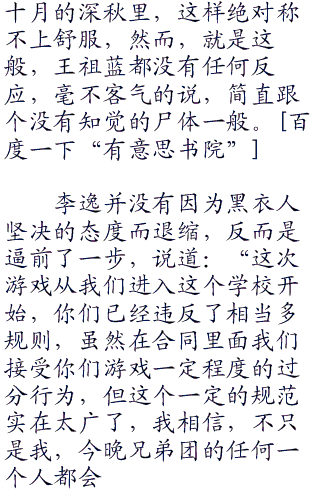 十月的深秋里，这样绝对称
不上舒服，然而，就是这
般，王祖蓝都没有任何反
应，毫不客气的说，简直跟
个没有知觉的尸体一般。[百
度一下“有意思书院”]
李逸并没有因为黑衣人
坚决的态度而退缩，反而是
逼前了一步，说道：“这次
游戏从我们进入这个学校开
始，你们已经违反了相当多
规则，虽然在合同里面我们
接受你们游戏一定程度的过
分行为，但这个一定的规范
实在太广了，我相信，不只
是我，今晚兄弟团的任何一
个人都会